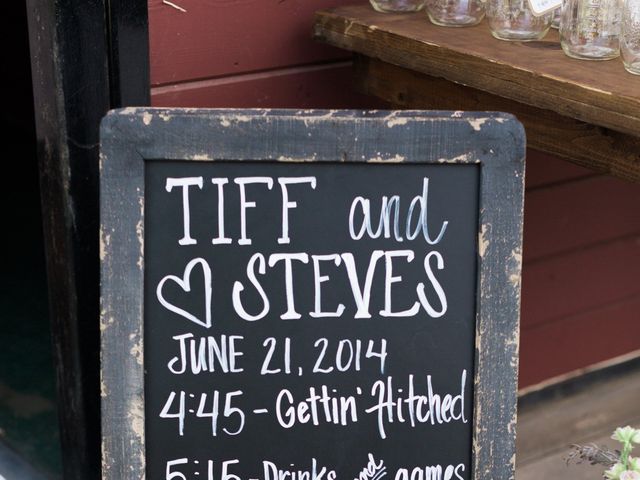 TIFF and
♡ STEVES
JUNE 21, 2014
4:45 - Gettin' Hitched
5:15 - Drinks and games